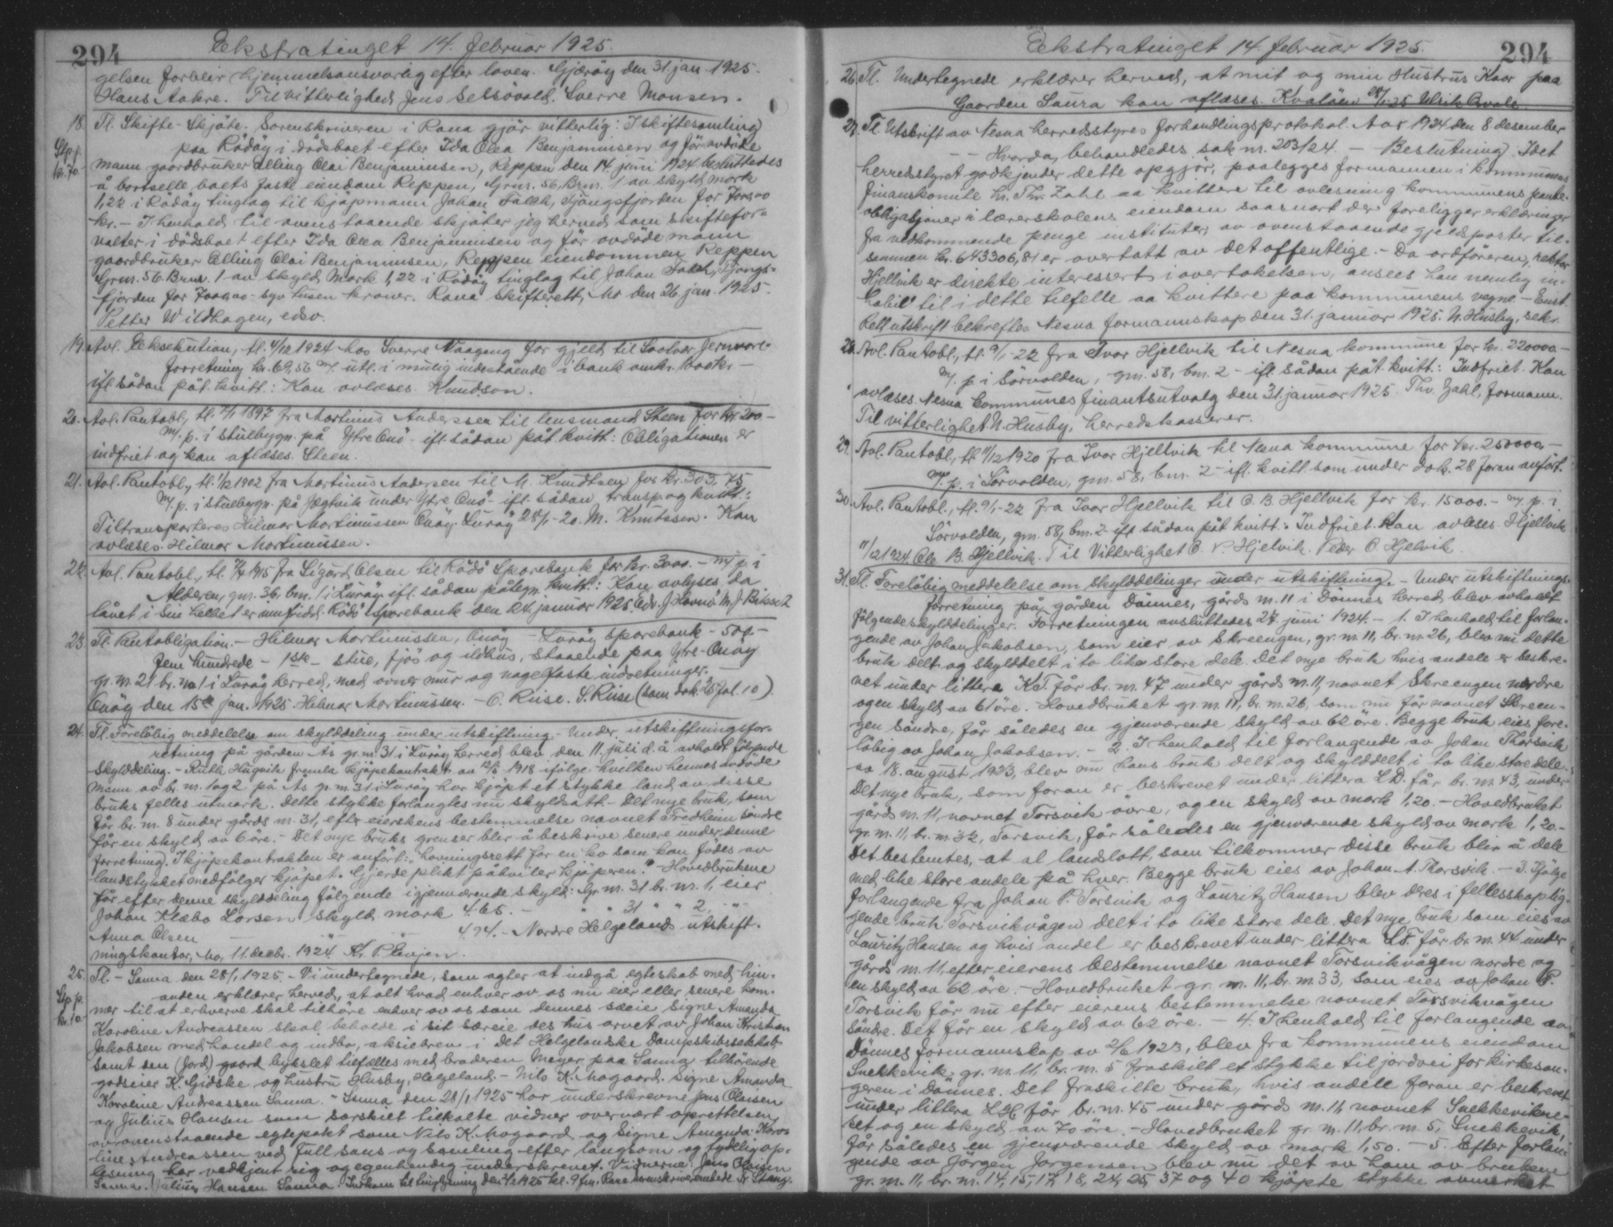 294 Ekstratinget 14. februar 1925.
gelsen forblir hjemmelsansvarlig efter loven. Gjerøy den 31. jan. 1925.
Hans Aakre. Til vitterlighed Jens Selsøvold. Sverre Monsen.
18. Tl. Skifte-Skjøte. Sorenskriveren i Rana gjør vitterlig: I skiftesamling
paa Rødøy i dødsboet efter Ida Olea Benjaminsen og før avdøde
mann gaardbruker Elling Olai Benjaminsen, Reppen den 14 juni 1924 besluttedes
å bortselle boets faste eiendom Reppen, Grnr. 56 Brnr. 1 av skyld mark
1,22 i Rødøy tinglag til kjøpmann Johan Falch, Tjongsfjorden for 7000.00
kr. - I henhold til ovenstaaende skjøter jeg herved som skiftefor-
valter i dødsboet efter Ida Olea Benjaminsen og før avdøde mann
gaardbruker Elling Olai Benjaminsen, Reppen eiendommen Reppen
Grnr. 56 Brnr. 1 av skyld Mark 1,22 i Rødøy tinglag til Johan Falch, Tjongs-
fjorden for 7000.00 syv tusen kroner. Rana skifterett, Mo den 26 jan. 1925.
Petter Wildhagen, edsv.
19. Avl. Eksekution, tl. 4/12 1924 hos Sverre Naageng for gjeld til Svolvær Jernvare-
forretning kr. 69,56 m/ utl. i mulig indestående i bank
ifl. sådan påt. kvitt: Kan avlæses. Knudson.
20. Avl. Pantobl., tl. 1897 fra Mortinus Anderssen til lensmand Steen for kr. 200 -
m/ p. i stuebygn. på Ytre Onø - ifl. sådan påt kvitt: Obligationen er
indfriet og kan aflæses. Steen.
21. Avl. Pantobl., tl. 1/2 1902 fra Mortinus Andersen til M. Knudtsen for kr. 303,75
m/ p. i stuebygn. på Jegtvik under Ytre Onø - ifl. sådan transp. og kvitt:
Tiltransporteres Hilmar Mortinussen Onøy. Lurøy 28/1-20. M. Knutssen. Kan
avlæses. Hilmar Mortinussen.
22. Avl. Pantobl., tl. 1915 fra Sigurd Olsen til Rødø Sparebank for kr. 3000. - m/ p. i
Alderen, gnr. 36, bnr. 1 i Lurøy ifl. sådan påtegn. kvitt: Kan avlyses da
lånet i sin helhet er innfridd. Rødø Sparebank den 24 januar 1925
23. Tl. Pantobligation. - Hilmar Mortinussen, Onøy - Lurøy sparebank - 500,-
fem hundrede - 1ste - stue, fjøs og ildhus, staaende paa Ytre-Onøy
gr. nr. 21 br. nr. 1 i Lurøy herred, med ovner mur og nagelfaste indretninger. -
Onøy den 15de jan. 1925. Hilmar Mortinussen. - O. Riise. S. Riise (som dok. 20 fol. 10).
24. Tl. Foreløbig meddelelse om skylddeling under utskiftning. Under utskiftningsfor-
retning på gården As gr. nr. 31 i Lurøy herred blev den 11. juli d. å. avholdt følgende
skylddeling. - Ruth Hugvik fremla kjøpekontrakt av 12/5 1918 ifølge hvilken hennes avdøde
mann av br. nr. 1 og 2 på As gr. nr. 31 i Lurøy har kjøpt et stykke land av disse
bruks felles utmark. Dette stykke forlangtes nu skyldsatt. - Det nye bruk, som
får br. nr. 8 under gårds nr. 31, efter eierskens bestemmelse navnet Fredheim søndre
får en skyld av 6 öre. - Det nye bruks grenser blir å beskrive senere under denne
forretning. I kjøpekontrakten er anført: "havningsrett for en ko som kan fødes av
landstykket medfølger kjøpet. Gjerdeplikt påhviler kjøperen." - Hovedbrukene
får efter denne skylddeling følgende igjenværende skyld: Gr. nr. 31 br. nr. 1, eier
Johan Klæbo Larsen, skyld mark 4.65. - " " 31 " " 2, "
Anna Olsen - 4.74. - Nordre Helgeland utskift-
ningskontor, Mo, 11. decbr. 1924.
25. Tl. - Sanna den 28/1, 1925. - Vi undertegnede, som agter at indgå egteskab med hin-
anden erklærer herved, at alt hvad enhver av os nu eier eller senere kom-
mer til at erhverve skal tilhøre enhver av os som dennes særeie. Signe Amanda
Karoline Andreassen skal beholde i sit særeie des hus arvet av Johan Kristian
Jakobsen med handel og indbo, aksieren i det Helgelandske Dampskibsselskab
samt den (jord) gaard bykslet til felles med broderen Meyer paa Sanna tilhørende
godseier K. Gidske og hustru Husby, Helgeland. - Nils K. Mogaard. Signe Amanda
Karoline Andreassen Sanna. - Sanna den 28/1 1925 har underskrevne Jens Olausen
og Julius Hansen som særskilt tilkalte vidner overvært oprettelsen
av ovenstaaende egtepakt som Nils K. Mogaard og Signe Amanda Karo-
line Andreassen ved full sans og samling efter langsom og tydelig op-
læsning har vedkjent sig og egenhændig underskrevet. Vidnerne: Jens Olausen
Sanna. Julius Hansen Sanna.
Ekstratinget 14. februar 1925. 294
26. Tl. Undertegnede erklærer herved, at mit og min Hustrus Kaar paa
Gaarden Saura kan aflæses. Kvaløen
27. Tl. Utskrift av Nesna herredsstyres forhandlingsprotokol. Aar 1924 den 8 desember
- - Hvorda, behandledes sak nr. 203/24. - Beslutning. Idet
herredsstyret godkjender dette opgjør, paalegges formannen i kommunens
finanskomite hr. Thv. Zahl aa kvittere til avlesning kommunens pante-
obligasjoner i lærerskolens eiendom saasnart der foreligger erklæringer
fra vedkommende penge institutter av ovenstaaende gjeldsposter til-
sammen kr. 643306,81 er overtatt av det offentlige. - Da ordføreren, rektor
Hjellvik er direkte interessert i overtakelsen, ansees han nemlig in-
habil til i dette tilfelle aa kvittere paa kommunens vegne. - Enst.
Rett utskrift bekreftes Nesna formannskap den 31. januar 1925. N. Husby, sekr.
28. Avl. Pantobl., tl. 9/1-22 fra Ivar Hjellvik til Nesna kommune for kr. 220000 -
m/ p. i Sørvolden, gnr. 58, bnr. 2 - ifl. sådan påt. kvitt: Indfriet. Kan
avlæses. Nesna Kommunes finantsutvalg den 31. januar 1925. Thv. Zahl, formann.
Til vitterlighet N. Husby, herredskasserer.
29. Avl. Pantobl., tl. 1/12 1920 fra Ivar Hjellvik til Nesna kommune for kr. 250000 -
m/ p. i Sørvolden, gnr. 58, bnr. 2 - ifl. kvitt som under dok. 28 foran anført.
30. Avl. Pantobl., tl. 9/1-22 fra Ivar Hjellvik til O. B. Hjellvik for kr. 15000. - m/ p. i
Sørvolden, gnr. 58, bnr. 2 ifl. sådan påt kvitt: Indfriet. Kan avlæses. Hjellvik
11/12 1924. Ole B. Hjellvik. Til Vitterlighet O. P. Hjelvik. Peder O Hjelvik.
31. Tl. Foreløbig meddelelse om skylddelinger under utskiftning. - Under utskiftnings-
forretning på gården Dønnes, gårds nr. 11 i Dønnes herred blev avholdt
følgende skylddelinger. Forretningen avsluttedes 27. juni 1924. - 1. I henhold til forlan-
gende av Johan Jakobsen, som eier av Skreengen, gr. nr. 11, br. nr. 26, blev nu dette
bruk delt og skylddelt i to like store dele. Det nye bruk hvis andele er beskre-
vet under littera får br. nr. 47 under gårds nr. 11, navnet Skreengen nordre
og en skyld av 61 øre. - Hovedbruket gr. nr. 11, br. nr. 26, som nu får navnet Skreen-
gen søndre, får således en gjenværende skyld av 62 öre. Begge bruk eies fore-
løbig av Johan Jakobsen. - 2. I henhold til forlangende av Johan Thorsvik
av 18. august 1923, blev nu hans bruk delt og skylddelt i to like store dele.
Det nye bruk, som foran er beskrevet under littera får br. nr. 43, under
gårds nr. 11, navnet Torsvik øvre, og en skyld av mark 1,20. - Hovedbruket
gr. nr. 11, br. nr. 32, Torsvik, får således en gjenværende skyld av mark 1,20. -
Det bestemtes, at al landslott, som tilkommer disse bruk blir å dele
med like store andele på hver. Begge bruk eies av Johan A. Thorsvik. - 3. Ifølge
forlangende fra Johan P. Torsvik og Lauritz Hansen blev deres i fellesskap lig-
gende bruk Torsvikvågen delt i to like store dele. Det nye bruk som eies av
Lauritz Hansen og hvis andel er beskrevet under littera får br. nr. 44 under
gårds nr. 11, efter eierens bestemmelse navnet Torsvikvågen nordre og
en skyld av 62 øre. - Hovedbruket gr. nr. 11, br. nr. 33, som eies av Johan P.
Torsvik får nu efter eierens bestemmelse navnet Torsvikvågen
søndre. Det får en skyld av 62 öre. - 4. I henhold til forlangende av
Dønnes formannskap av 2/6 1923, blev fra kommunens eiendom
Snekkevik, gr. nr. 11, br. nr. 5 fraskilt et stykke til jordvei for kirkesan-
geren i Dønnes. Det fraskilte bruk, hvis andele foran er beskrevet
under littera får br. nr. 45 under gårds nr. 11, navnet
og en skyld av 70 öre. - Hovedbruket gr. nr. 11, br. nr. 5, Snekkevik,
får således en gjenværende skyld av mark 1,50. - 5. Efter forlan-
gende av Jørgen Jørgensen blev nu det av ham av brukene
gr. nr. 11, br. nr. 14, 15, 17, 18, 24, 25, 37 og 40 kjøpte stykke